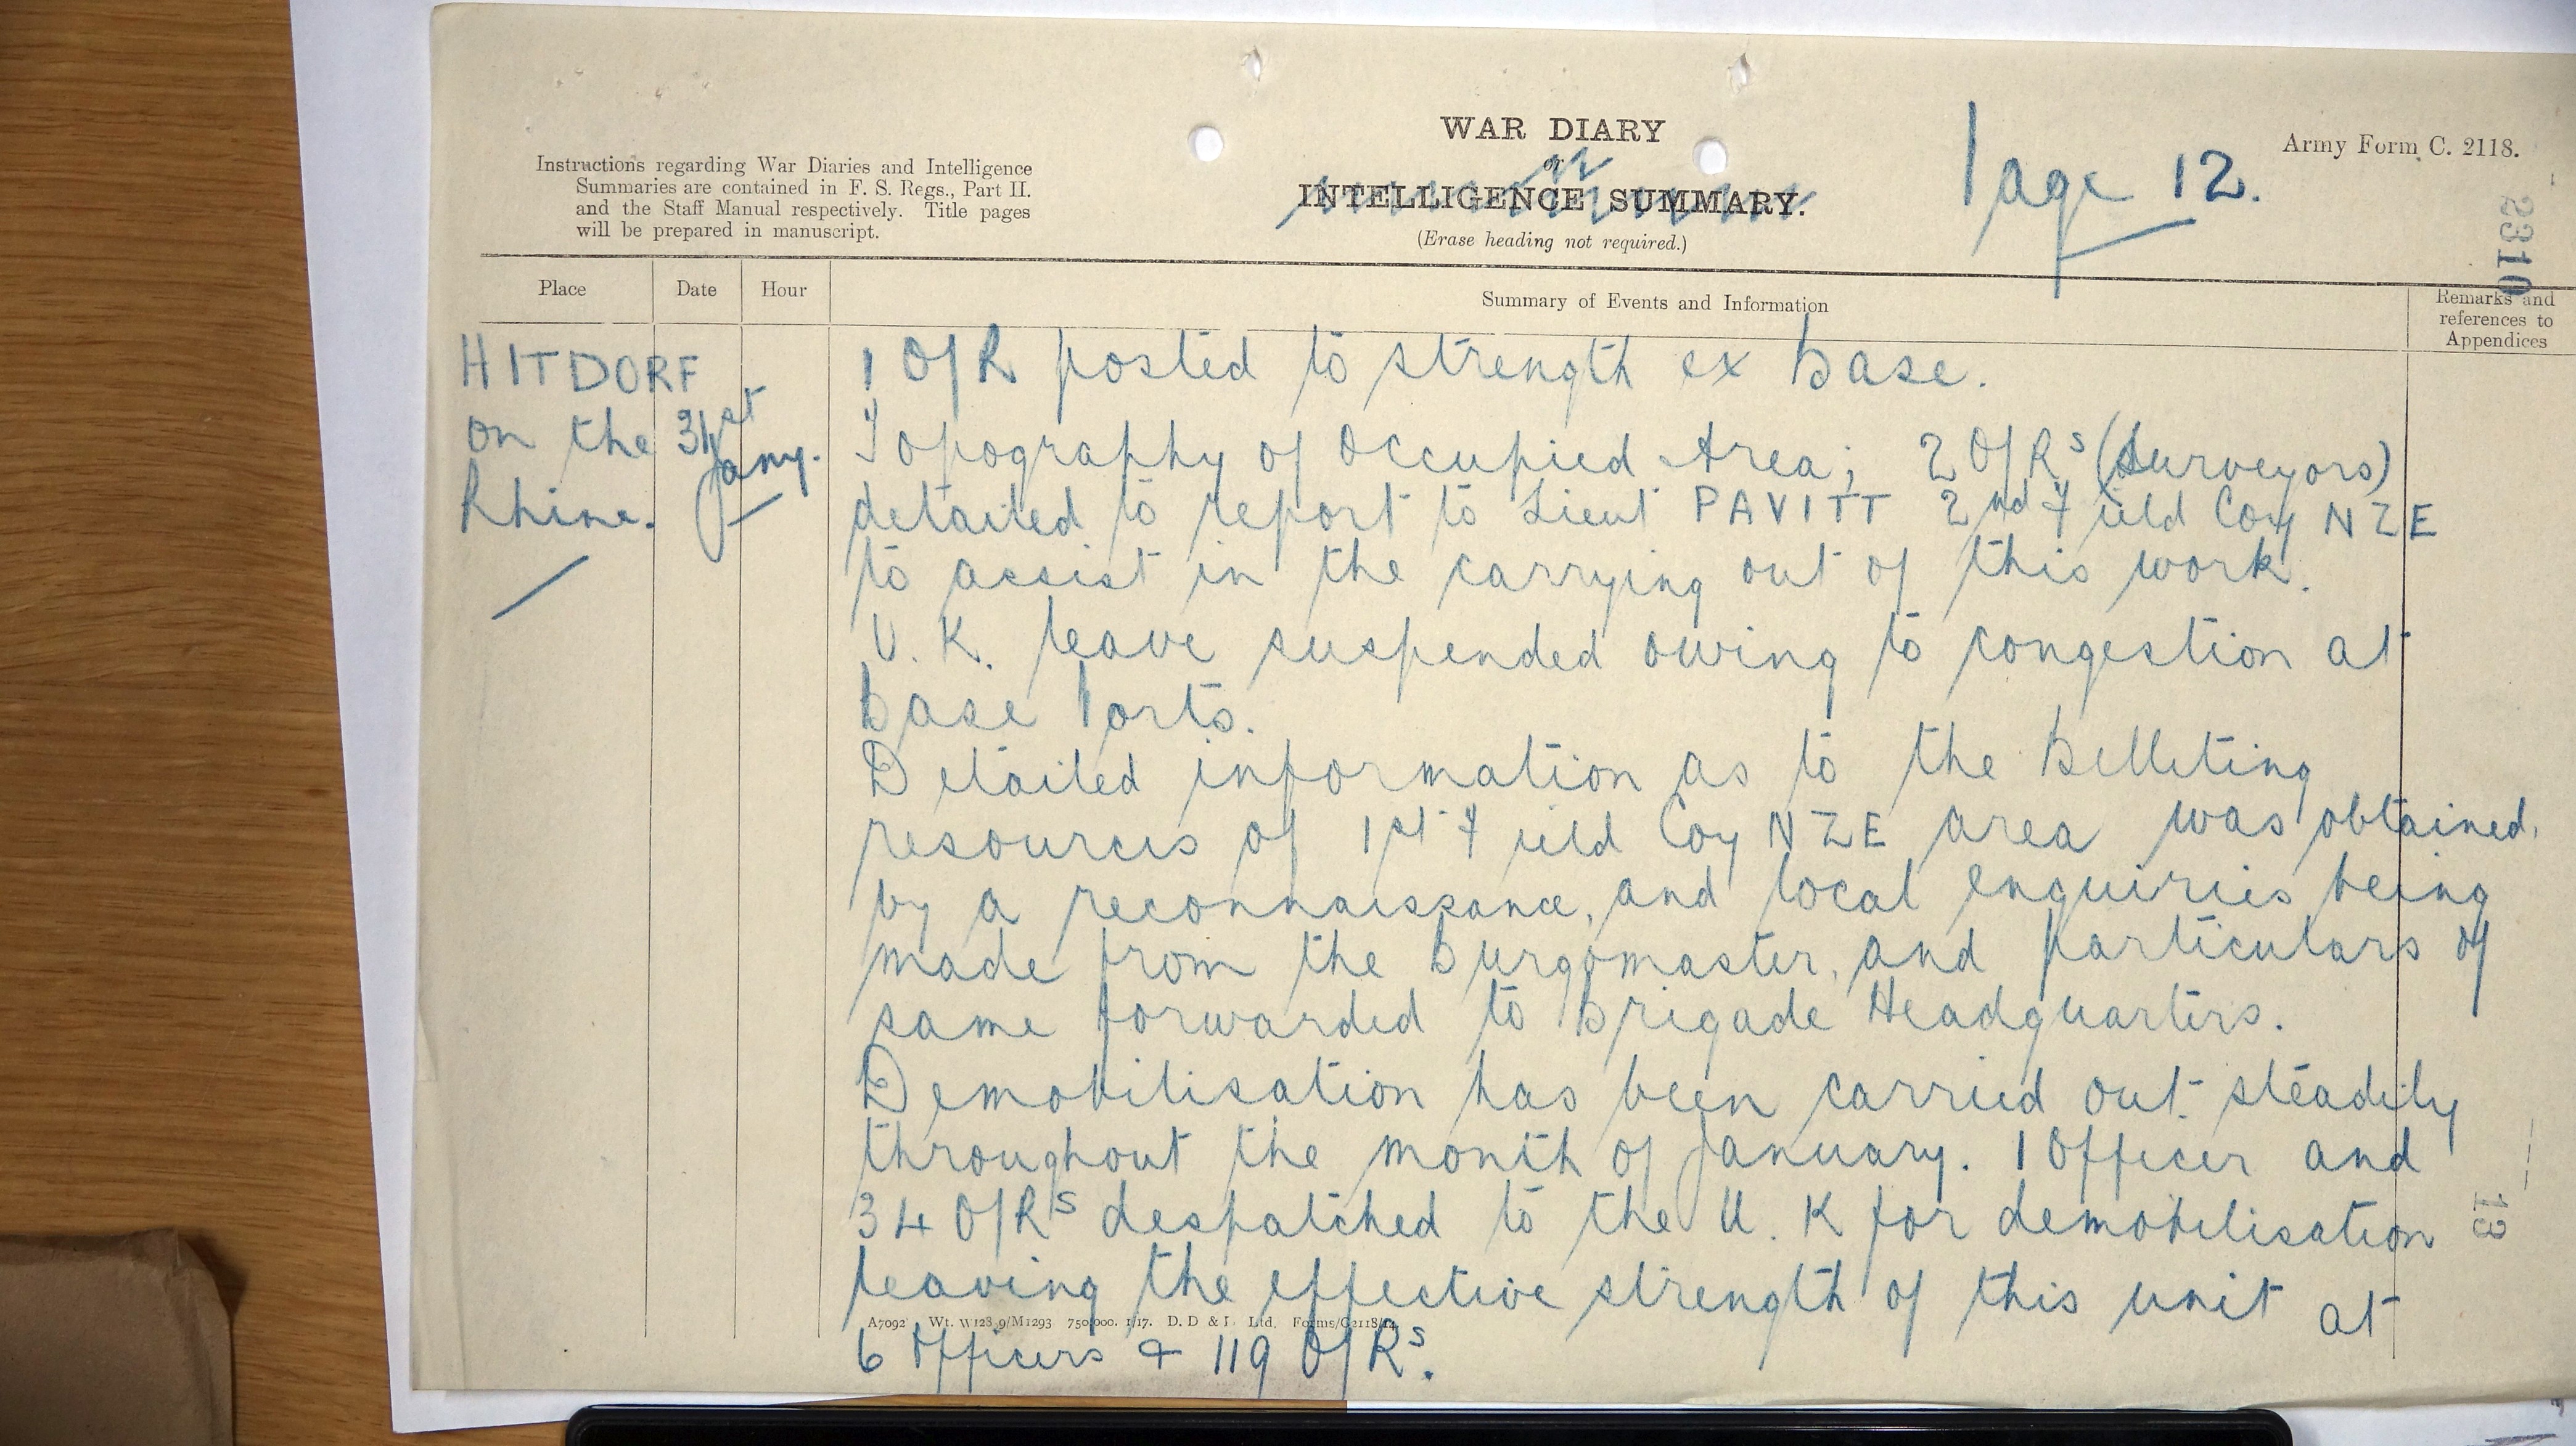 WAR DIARY
or
INTELLIGENCE SUMMARY.
(Erase heading not required.)
Instructions regarding War Diaries and Intelligence
Summaries are contained in F. S. Regs., Part II.
and the Staff Manual respectively. Title pages
will be prepared in manuscript.
Page 12.
Army Form C. 2118.
2310
Place
Date
Hour
Summary of Events and Information
Remarks and
references to
Appendices
HITDORF
on the
Rhine.
31st
Jany.
1 O/R posted to strength ex Base.
Topography of Occupied Area; 2 O/Rs (Surveyors)
detailed to report to Lieut PAVITT 2nd Field Coy NZE
to assist in the carrying out of this work.
U.K. leave suspended owing to congestion at
Base Ports.
Detailed information as to the Billeting
resources of 1st Field Coy NZE area was obtained,
by a reconnaissance, and local enquiries being
made from the Burgomaster, and particulars of
same forwarded to Brigade Headquarters.
Demobilisation has been carried out steadily
throughout the month of January. 1 Officer and
34 O/Rs despatched to the U.K for demobilisation
leaving the effective strength of this unit at
6 Officers & 119 O/Rs.
A7092 Wt. W128 9/M1293 750,000. 1/17. D. D & L Ltd. Forms/C2118/14.
13